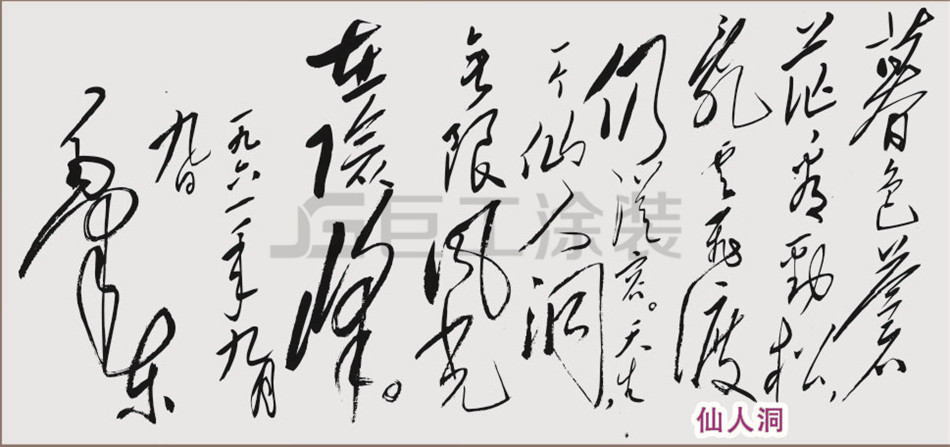 暮色蒼
茫看勁松,
乱云飞渡
仍從容。天生
一个仙人洞,
无限風光
在險峰。
一九六一年九月
九日
毛泽东
仙人洞
JG巨工涂装